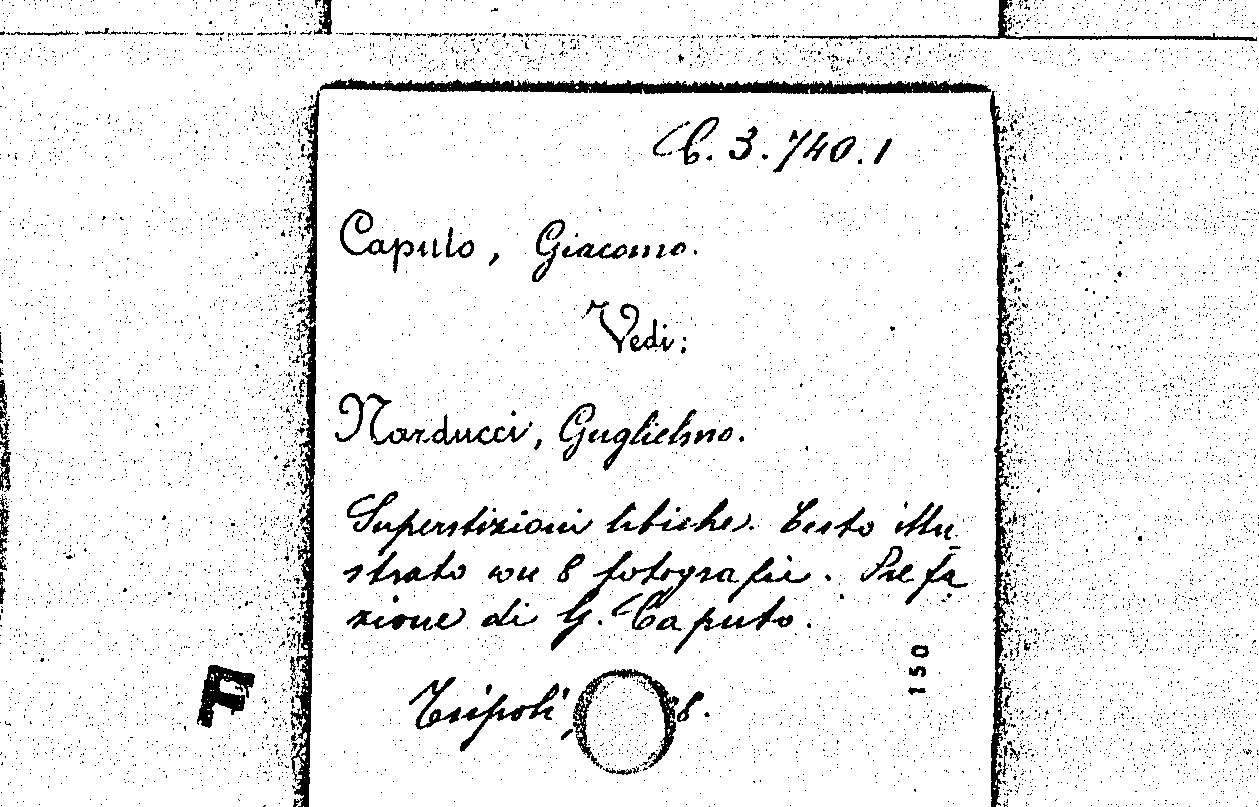 C. 3.740.1
Caputo, Giacomo.
Vedi:
Narducci, Guglielmo.
Superstizioni libiche. Testo illu
strato con 8 fotografie. Prefa
zione di G. Caputo.
Tripoli, 8.
150
F